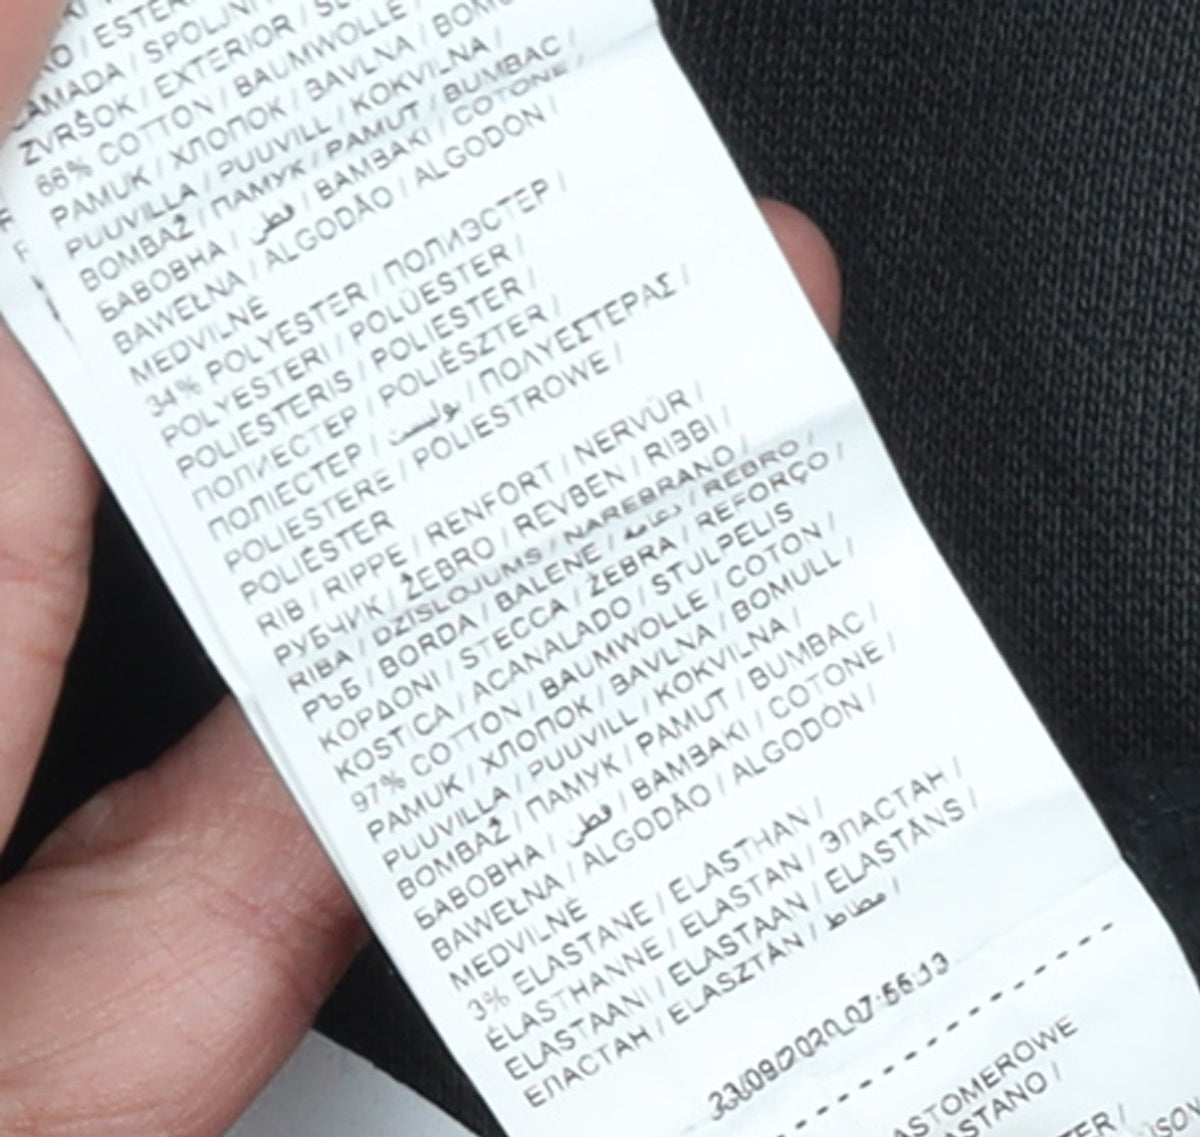 ZVRŠOK / EXTERIOR /
66% COTTON / BAUMWOLLE /
PAMUK / ХЛОПОК / BAVLNA /
PUUVILLA / PUUVILL / KOKVILNA /
BOMBAŽ / ПАМУК / PAMUT / BUMBAC /
БАВОВНА / قطن / ΒΑΜΒΑΚΙ / COTONE /
BAWEŁNA / ALGODÃO / ALGODÓN /
MEDVILNĖ
34% POLYESTER / ПОЛИЭСТЕР /
POLYESTERI / POLÜESTER /
POLIESTERIS / POLIESTER /
ПОЛИЕСТЕР / POLIÉSZTER /
ПОЛІЕСТЕР / بوليستر / ΠΟΛΥΕΣΤΕΡΑΣ /
POLIESTERE / POLIESTROWE /
POLIÉSTER
RIB / RIPPE / RENFORT / NERVÜR /
РУБЧИК / ŽEBRO / REVBEN / RIBBI /
RIBA / DZISLOJUMS / NAREBRANO /
РЪБ / BORDA / BALENE / دعامة / REBRO /
ΚΟΡΔΟΝΙ / STECCA / ŻEBRA / REFORÇO /
KOSTICA / ACANALADO / STULPELIS
97% COTTON / BAUMWOLLE / COTON /
PAMUK / ХЛОПОК / BAVLNA / BOMULL /
PUUVILLA / PUUVILL / KOKVILNA /
BOMBAŽ / ПАМУК / PAMUT / BUMBAC /
БАВОВНА / قطن / ΒΑΜΒΑΚΙ / COTONE /
BAWEŁNA / ALGODÃO / ALGODÓN /
MEDVILNĖ
3% ELASTANE / ELASTHAN /
ÉLASTHANNE / ELASTAN / ЭЛАСТАН /
ELASTAANI / ELASTAAN / ELASTĀNS /
ЕЛАСТАН / ELASZTÁN / مطاط /